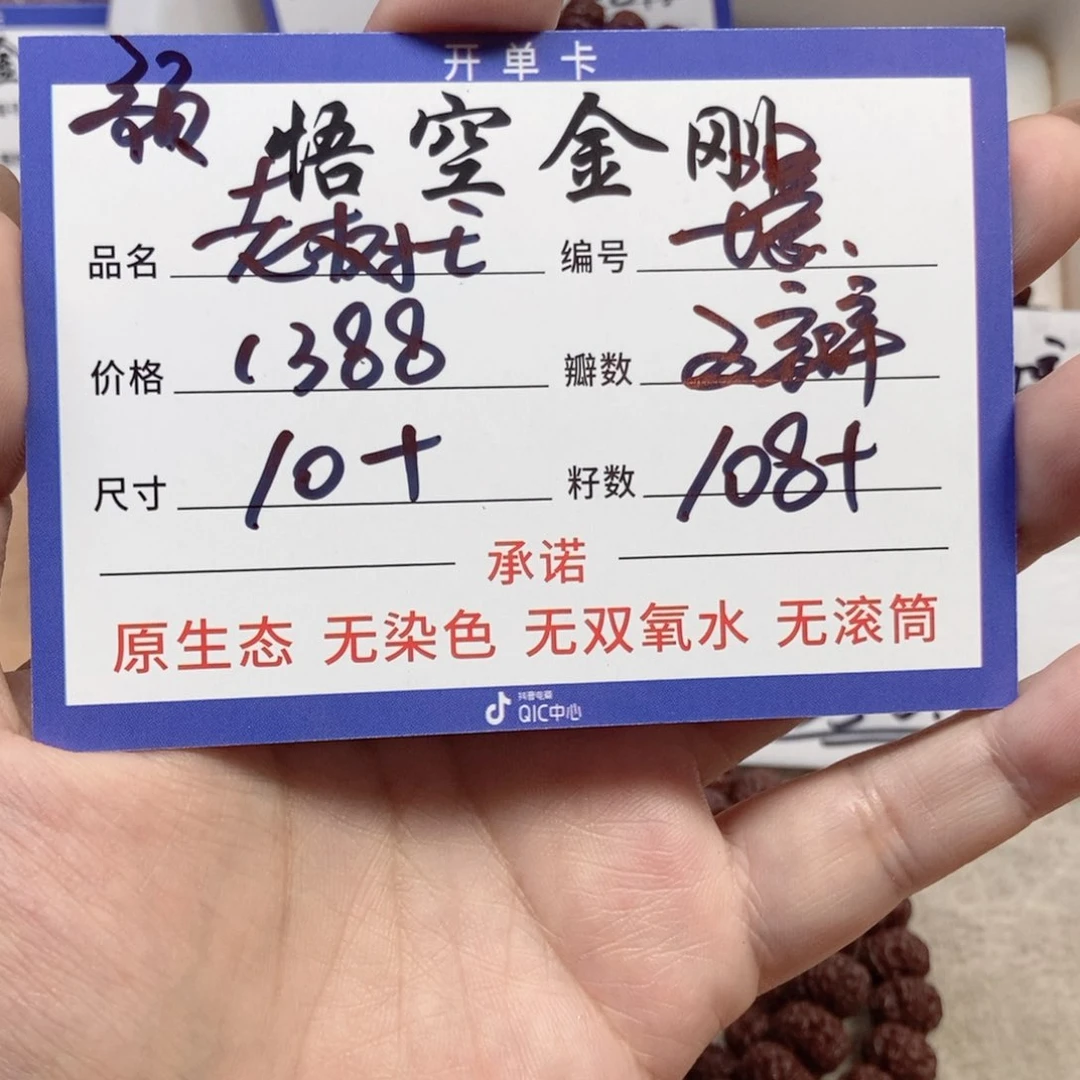 开单卡
悟空金刚
品名 老树壮 编号
价格 1388 瓣数 五瓣
尺寸 10+ 籽数 108+
承诺
原生态 无染色 无双氧水 无滚筒
抖音电商
QIC中心